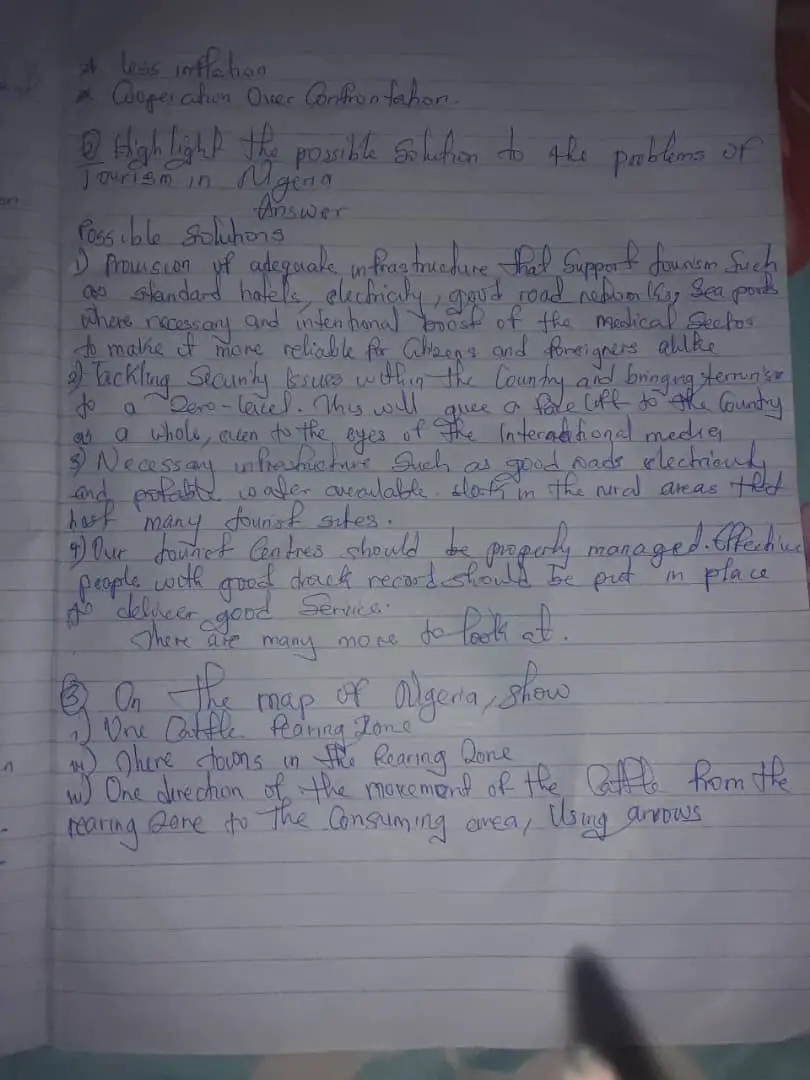 * less inflation
* Cooperation Over Confrontation.
② Highlight the possible Solution to the problems of
Tourism in Nigeria
Answer
Possible Solutions
1) Provision of adequate infrastructure that Support tourism Such
as standard hotels, electricity, good road networks, Sea ports
where necessary and intentional boost of the medical Sector
to make it more reliable for Citizens and foreigners alike
2) Tackling Security Issues within the Country and bringing terrorism
to a Zero-level. This will give a face lift to the Country
as a whole, even to the eyes of the International media
3) Necessary infrastructure Such as good roads electricity
and potable water available in the rural areas that
host many tourist sites.
4) Our tourist Centres should be properly managed. Effective
people with good track record should be put in place
to deliver good Service.
There are many more to look at.
③ On the map of Nigeria, show
i) One Cattle Rearing Zone
Three towns in the Rearing Zone
One direction of the movement of the Cattle from the
rearing Zone to the Consuming area, Using arrows